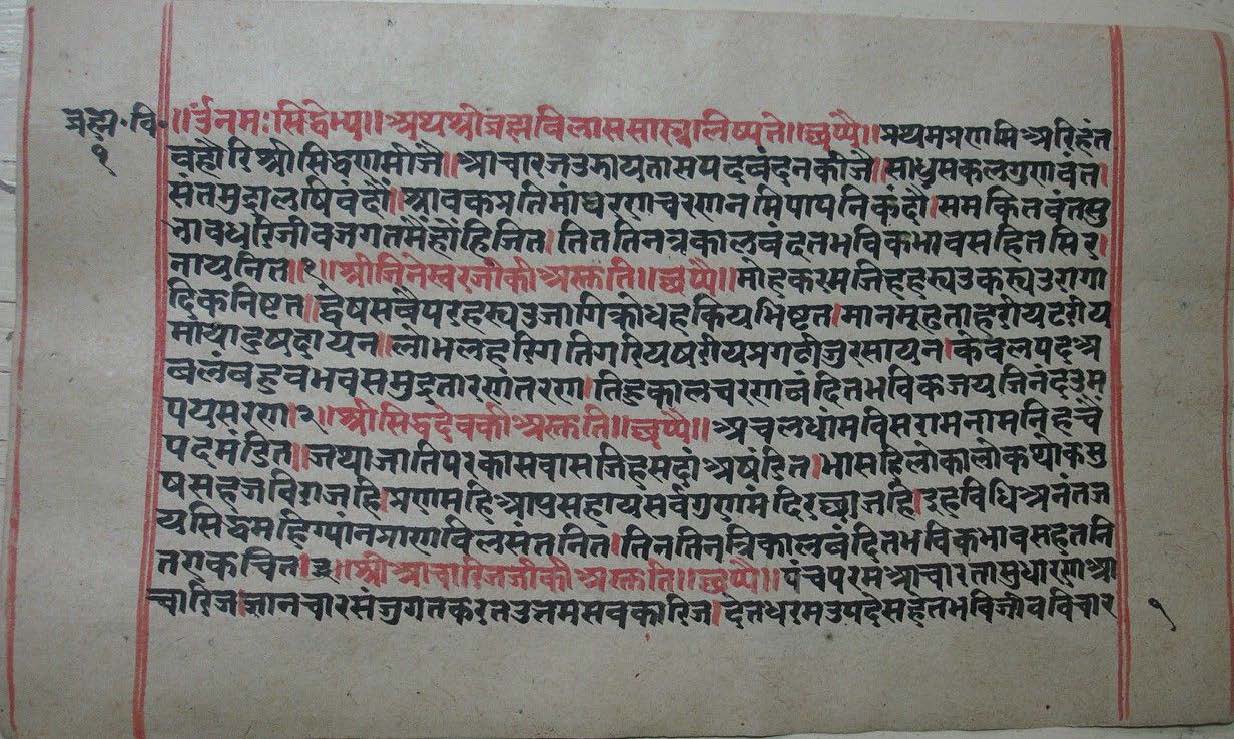 ब्रह्म॰वि॰
१
॥ॐनमःसिद्धेभ्य॥अथश्रीब्रह्मविलाससास्त्रलिष्यते॥छप्पै॥प्रथमप्रणमिअरिहंत
वहौरिश्रीसिद्धणमीजै॥आचारजउझायतासपदवंदनकीजै॥साधुसकलगुणवंत।
संतमुद्रालषिवंदौं।श्रावकप्रतिमांधरणचरणनमिपापनिकंदौ।समकितवंतसु
भावधरिजीवजगतमैंहोंहिजित।तिततिनत्रकालवंदतभविकभावसहितसिर।
नायनित॥१॥श्रीजिनेस्वरजीकीअस्तुति॥छप्पै॥मोहकरमजिहहरयउकरयउरागा
दिकनिष्टत॥द्वेषसवैपरहरयउजागिक्रोधहकियभिष्टत।मानमूढताहरीयटरीय
मायादुषदायन॥लोभलहरिगतिगरियषरीयप्रगटीजुरसायन।केवलपदअ
वलंवहुवभवसमुद्रतारणतरण।तिहुकालचरणवंदितभविकजयजिनंदतुम
पयसरण।२॥श्रीसिद्धदेवकीअस्तुति॥छप्पै॥अचलधांमविसरामनामनिहचै
पदमंडित॥जथाजातिपरकासवासजिहसदांअषंडित।भासहिलोकालोकथोकसु
षसहजविराजहि।प्रणमहिआपुसहायसर्वगुणमंदिरछाजहि।इहविधिअनंतज
यसिद्धमहिग्यांनप्राणविलसंतनित।तिनतिनत्रिकालवंदितभविकभावसहतनि
तएकचित।३॥श्रीआचारिजजीकीअस्तुति॥छप्पै॥पंचपरमआचारतासुधारणआ
चारिज।ज्ञानचारसंजुगतकरतउतमसवकारिज।देतधरमउपदेसहेतभविजीवविचार
१